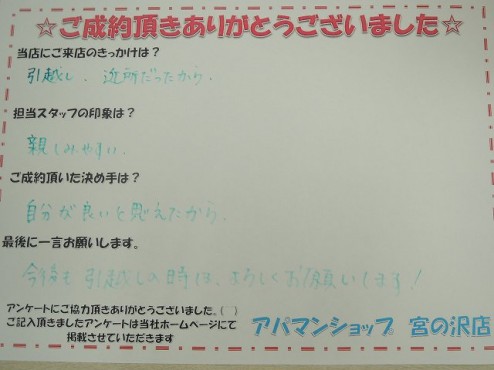 ☆ご成約頂きありがとうございました☆
当店にご来店のきっかけは？
引越し、近所だったから。
担当スタッフの印象は？
親しみやすい。
ご成約頂いた決め手は？
自分が良いと思えたから。
最後に一言お願いします。
今後も引越しの時は、よろしくお願いします！
アンケートにご協力頂きありがとうございました。(^^)
ご記入頂きましたアンケートは当社ホームページにて
掲載させていただきます
アパマンショップ 宮の沢店